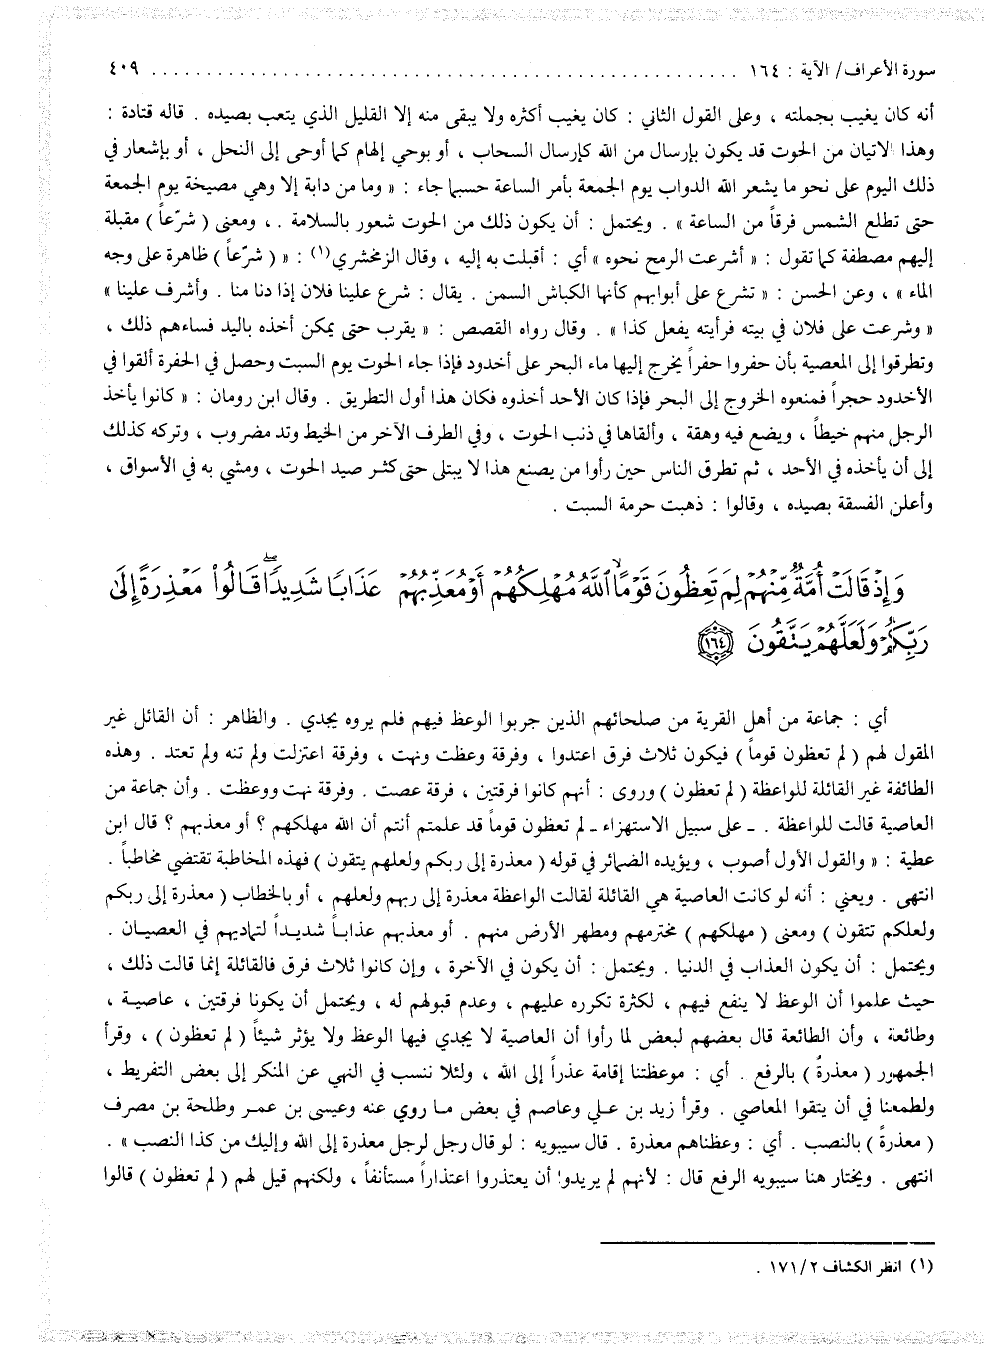 سورة الأعراف/ الآية : ١٦٤ ........................................................ ٤٠٩
أنه كان يغيب بجملته ، وعلى القول الثاني : كان يغيب أكثره ولا يبقى منه إلا القليل الذي يتعب بصيده . قاله قتادة :
وهذا الاتيان من الحوت قد يكون بإرسال من الله كإرسال السحاب ، أو بوحي إلهام كما أوحى إلى النحل ، أو بإشعار في
ذلك اليوم على نحو ما يشعر الله الدواب يوم الجمعة بأمر الساعة حسبما جاء : « وما من دابة إلا وهي مصيخة يوم الجمعة
حتى تطلع الشمس فرقاً من الساعة » . ويحتمل : أن يكون ذلك من الحوت شعور بالسلامة . ، ومعنى ( شرّعاً ) مقبلة
إليهم مصطفة كما تقول : « أشرعت الرمح نحوه » أي : أقبلت به إليه ، وقال الزمخشري(١) : « ( شرّعاً ) ظاهرة على وجه
الماء » ، وعن الحسن : « تشرع على أبوابهم كأنها الكباش السمن . يقال : شرع علينا فلان إذا دنا منا . وأشرف علينا »
« وشرعت على فلان في بيته فرأيته يفعل كذا » . وقال رواه القصص : « يقرب حتى يمكن أخذه باليد فساءهم ذلك ،
وتطرقوا إلى المعصية بأن حفروا حفراً يخرج إليها ماء البحر على أخدود فإذا جاء الحوت يوم السبت وحصل في الحفرة ألقوا في
الأخدود حجراً فمنعوه الخروج إلى البحر فإذا كان الأحد أخذوه فكان هذا أول التطريق . وقال ابن رومان : « كانوا يأخذ
الرجل منهم خيطاً ، ويضع فيه وهقة ، وألقاها في ذنب الحوت ، وفي الطرف الآخر من الخيط وتد مضروب ، وتركه كذلك
إلى أن يأخذه في الأحد ، ثم تطرق الناس حين رأوا من يصنع هذا لا يبتلى حتى كثر صيد الحوت ، ومشي به في الأسواق ،
وأعلن الفسقة بصيده ، وقالوا : ذهبت حرمة السبت .
وَإِذْ قَالَتْ أُمَّةٌ مِّنْهُمْ لِمَ تَعِظُونَ قَوْمًا ۙ اللَّهُ مُهْلِكُهُمْ أَوْ مُعَذِّبُهُمْ عَذَابًا شَدِيدًا ۖ قَالُوا۟ مَعْذِرَةً إِلَىٰ
رَبِّكُمْ وَلَعَلَّهُمْ يَتَّقُونَ ١٦٤
أي : جماعة من أهل القرية من صلحائهم الذين جربوا الوعظ فيهم فلم يروه يجدي . والظاهر : أن القائل غير
المقول لهم ( لم تعظون قوماً ) فيكون ثلاث فرق اعتدوا ، وفرقة وعظت ونهت ، وفرقة اعتزلت ولم تنه ولم تعتد . وهذه
الطائفة غير القائلة للواعظة ( لم تعظون ) وروى : أنهم كانوا فرقتين ، فرقة عصت . وفرقة نهت ووعظت . وأن جماعة من
العاصية قالت للواعظة . ـ على سبيل الاستهزاء ـ لم تعظون قوماً قد علمتم أنتم أن الله مهلكهم ؟ أو معذبهم ؟ قال ابن
عطية : « والقول الأول أصوب ، ويؤيده الضمائر في قوله ( معذرة إلى ربكم ولعلهم يتقون ) فهذه المخاطبة تقتضي مخاطباً .
انتهى . ويعني : أنه لو كانت العاصية هي القائلة لقالت الواعظة معذرة إلى ربهم ولعلهم ، أو بالخطاب ( معذرة إلى ربكم
ولعلكم تتقون ) ومعنى ( مهلكهم ) مخترمهم ومطهر الأرض منهم . أو معذبهم عذاباً شديداً لتماديهم في العصيان .
ويحتمل : أن يكون العذاب في الدنيا . ويحتمل : أن يكون في الآخرة ، وإن كانوا ثلاث فرق فالقائلة إنما قالت ذلك ،
حيث علموا أن الوعظ لا ينفع فيهم ، لكثرة تكرره عليهم ، وعدم قبولهم له ، ويحتمل أن يكونا فرقتين ، عاصية ،
وطائعة ، وأن الطائعة قال بعضهم لبعض لما رأوا أن العاصية لا يجدي فيها الوعظ ولا يؤثر شيئاً ( لم تعظون ) ، وقرأ
الجمهور ( معذرةٌ ) بالرفع . أي : موعظتنا إقامة عذراً إلى الله ، ولئلا ننسب في النهي عن المنكر إلى بعض التفريط ،
ولطمعنا في أن يتقوا المعاصي . وقرأ زيد بن علي وعاصم في بعض ما روي عنه وعيسى بن عمر وطلحة بن مصرف
( معذرةً ) بالنصب . أي : وعظناهم معذرة . قال سيبويه : لو قال رجل لرجل معذرة إلى الله وإليك من كذا النصب » .
انتهى . ويختار هنا سيبويه الرفع قال : لأنهم لم يريدوا أن يعتذروا اعتذاراً مستأنفاً ، ولكنهم قيل لهم ( لم تعظون ) قالوا
(١) انظر الكشاف ١٧١/٢ .